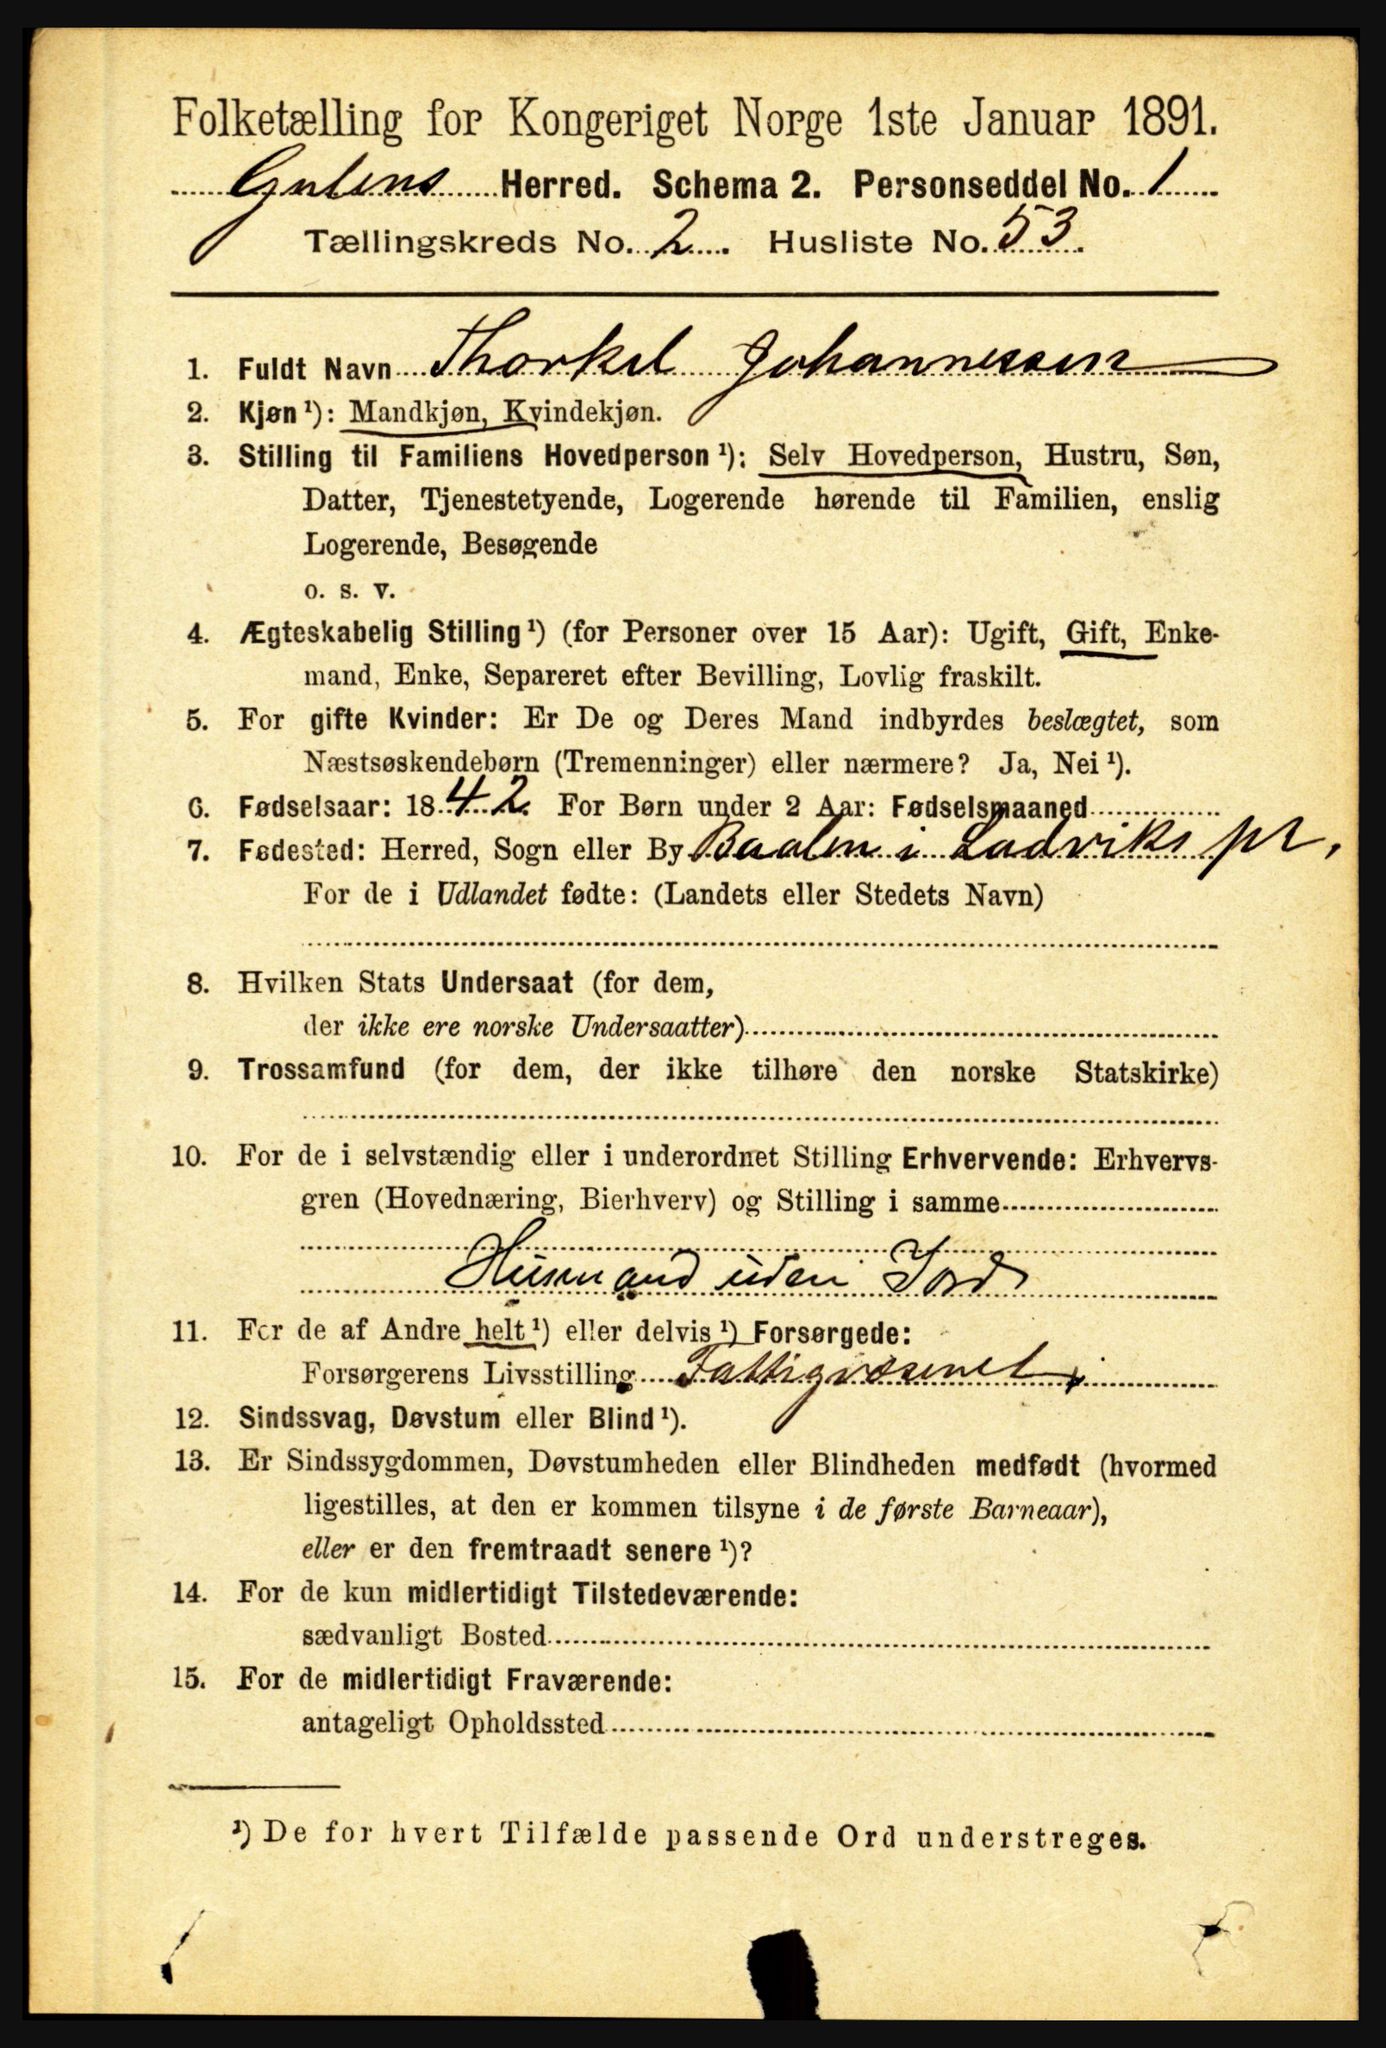 Folketælling for Kongeriget Norge 1ste Januar 1891.
Gulens Herred. Schema 2. Personseddel No. 1
Tællingskreds No. 2. Husliste No. 53.
1. Fuldt Navn Thorkel Johannessen
2. Kjøn ¹): Mandkjøn, Kvindekjøn.
3. Stilling til Familiens Hovedperson ¹): Selv Hovedperson, Hustru, Søn,
Datter, Tjenestetyende, Logerende hørende til Familien, enslig
Logerende, Besøgende
o. s. v.
4. Ægteskabelig Stilling ¹) (for Personer over 15 Aar): Ugift, Gift, Enke-
mand, Enke, Separeret efter Bevilling, Lovlig fraskilt.
5. For gifte Kvinder: Er De og Deres Mand indbyrdes beslægtet, som
Næstsøskendebørn (Tremenninger) eller nærmere? Ja, Nei ¹).
6. Fødselsaar: 1842. For Børn under 2 Aar: Fødselsmaaned
7. Fødested: Herred, Sogn eller By Baalen i Ladviks pr.
For de i Udlandet fødte: (Landets eller Stedets Navn)
8. Hvilken Stats Undersaat (for dem,
der ikke ere norske Undersaatter)
9. Trossamfund (for dem, der ikke tilhøre den norske Statskirke)
10. For de i selvstændig eller i underordnet Stilling Erhvervende: Erhvervs-
gren (Hovednæring, Bierhverv) og Stilling i samme
Husmand uden Jord
11. For de af Andre helt ¹) eller delvis ¹) Forsørgede:
Forsørgerens Livsstilling Fattigvæsenet
12. Sindssvag, Døvstum eller Blind ¹).
13. Er Sindssygdommen, Døvstumheden eller Blindheden medfødt (hvormed
ligestilles, at den er kommen tilsyne i de første Barneaar),
eller er den fremtraadt senere ¹)?
14. For de kun midlertidigt Tilstedeværende:
sædvanligt Bosted
15. For de midlertidigt Fraværende:
antageligt Opholdssted
¹) De for hvert Tilfælde passende Ord understreges.